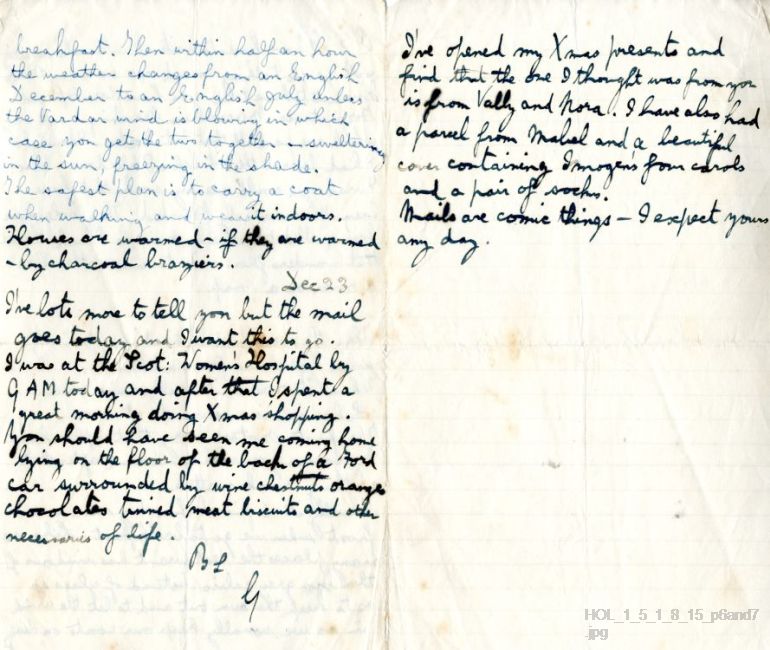 breakfast. Then within half an hour
the weather changes from an English
December to an English July unless
the Vardar wind is blowing in which
case you get the two together - sweltering
in the sun, freezing in the shade.
The safest plan is to carry a coat
when walking and wear it indoors.
Houses are warmed - if they are warmed
- by charcoal braziers.
Dec 23
I've lots more to tell you but the mail
goes today and I want this to go.
I was at the Scot: Women's Hospital by
9 AM today and after that I spent a
great morning doing Xmas shopping.
You should have seen me coming home
lying on the floor of the back of a Ford
car surrounded by wine chestnuts oranges
chocolates tinned meat biscuits and other
necessaries of life.
BL
G
I've opened my Xmas presents and
find that the one I thought was from you
is from Vally and Nora. I have also had
a parcel from Mabel and a beautiful
cover containing Imogen's four carols
and a pair of socks.
Mails are comic things - I expect yours
any day.
HOL_1_5_1_8_15_p6and7
.jpg